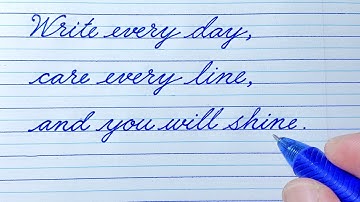 Write every day,
care every line,
and you will shine.